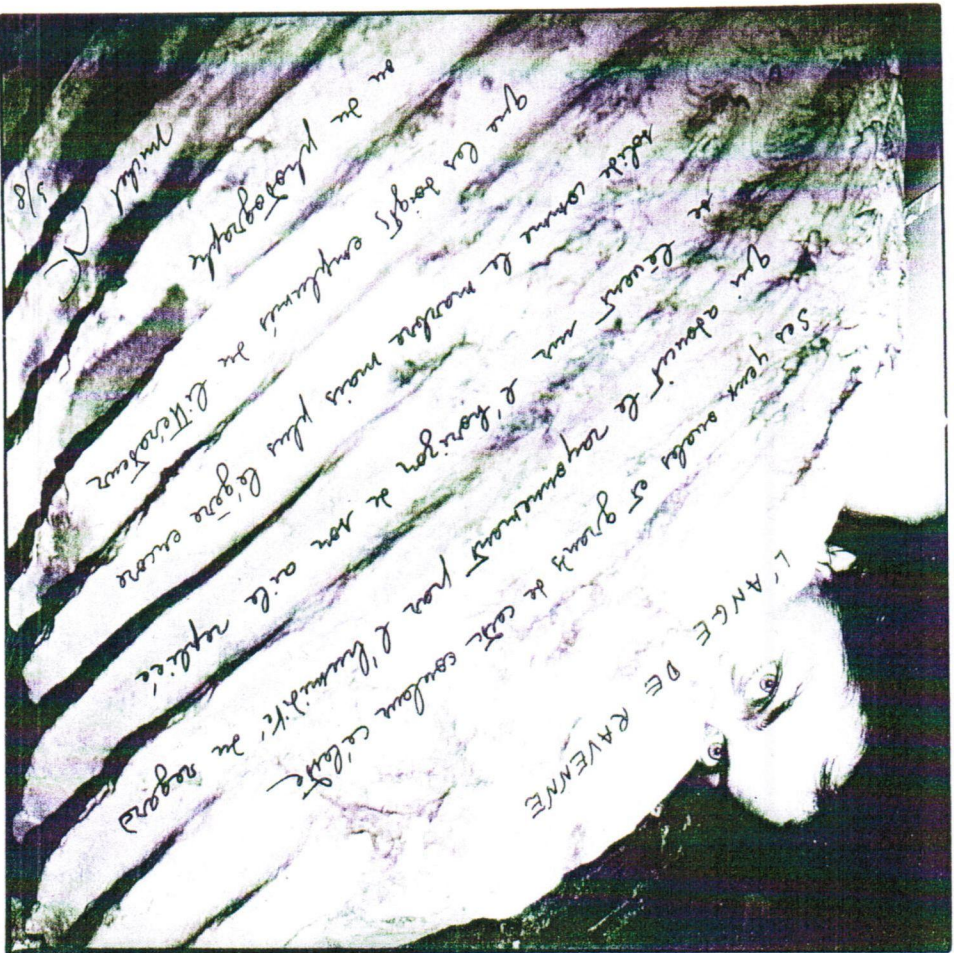 L'ANGE DE RAVENNE
Ses yeux ovales et grands de cette couleur céleste
qui adoucit le rayonnement par l'humidité du regard
se lèvent sur l'horizon de son aile repliée
solide comme le marbre mais plus légère encore
que les doigts emplumés du littérateur
ou du photographe
Michel
5/8